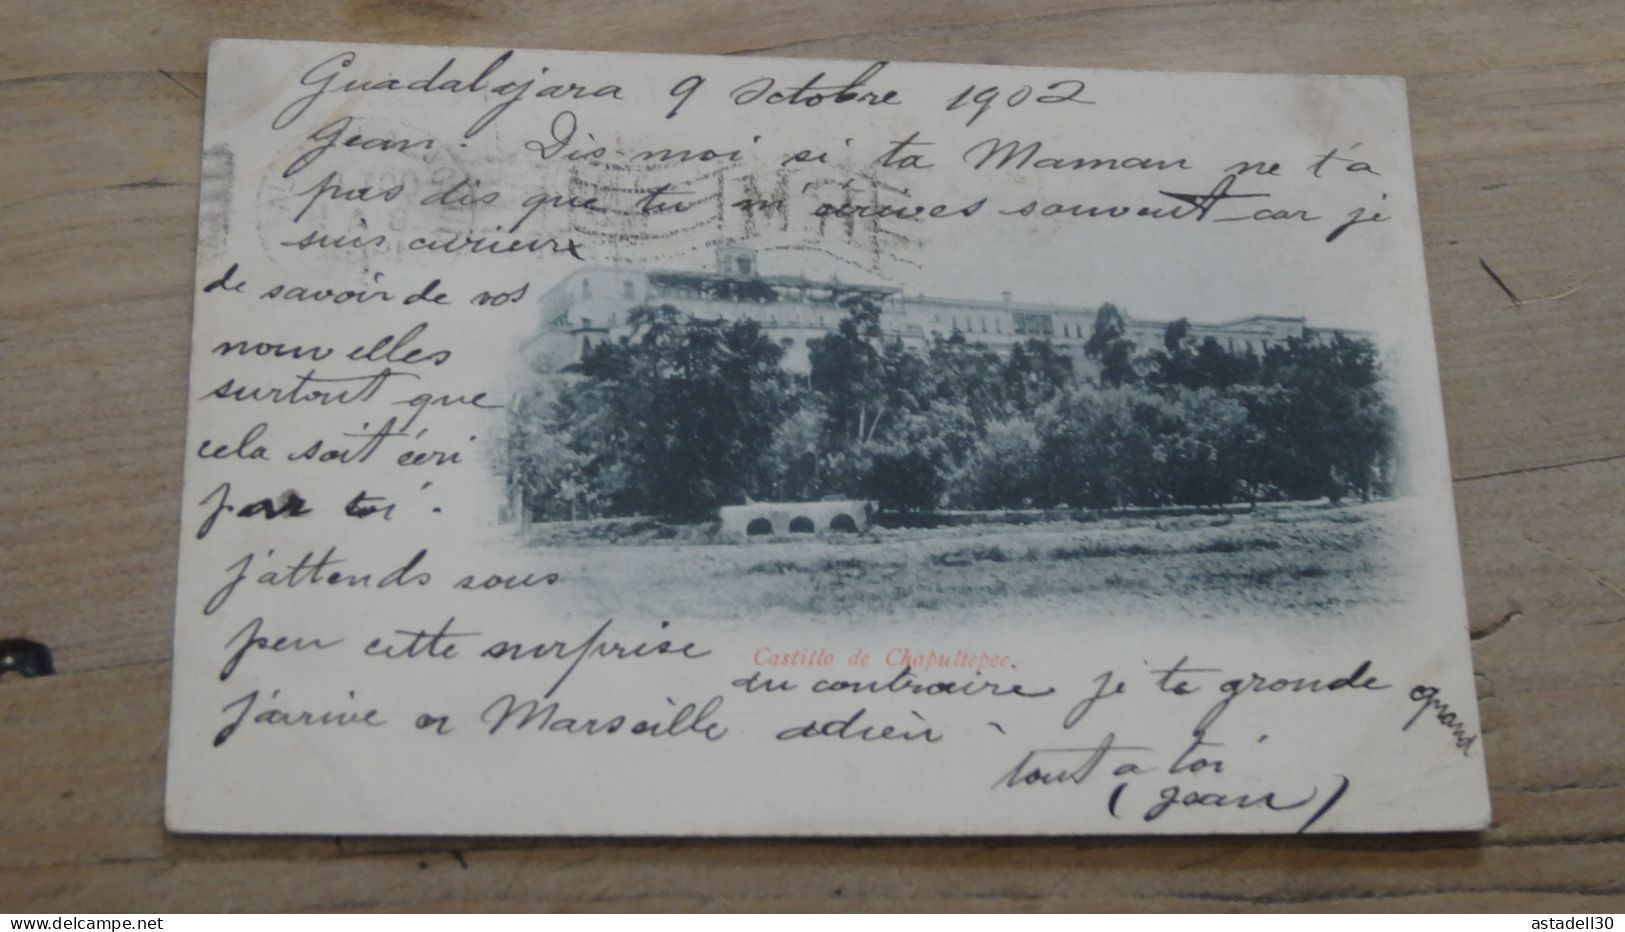 Guadalajara 9 Octobre 1902
Jean. Dis-moi si ta Maman ne t'a
pas dis que tu m'écrives souvent car je
suis curieux
de savoir de vos
nouvelles
surtout que
cela soit écri
par toi.
j'attends sous
peu cette surprise
Castillo de Chapultepec.
au contraire je te gronde grand
j'arrive a Marseille
tout a toi
(Jean)
www.delcampe.net
astadell30